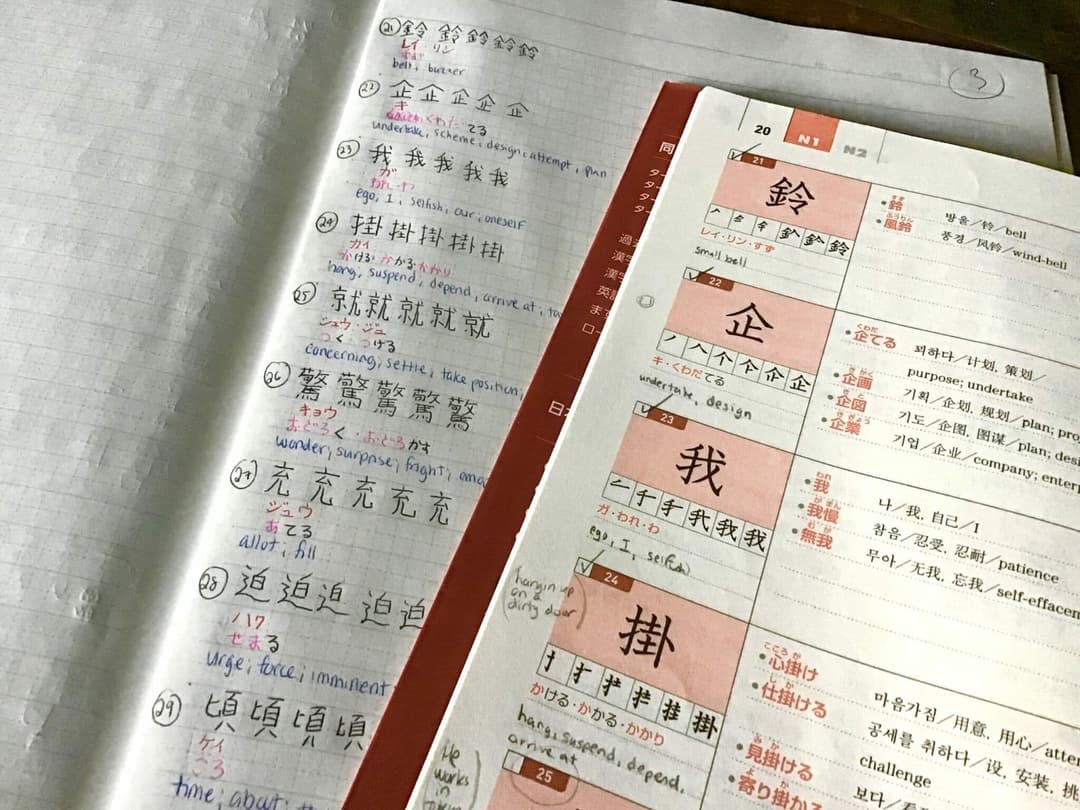 ㉑ 鈴 鈴 鈴 鈴 鈴
レイ・リン
すず
bell; buzzer
㉒ 企 企 企 企 企
キ
くわだてる
undertake, scheme, design, attempt, plan
㉓ 我 我 我 我 我
ガ
われ・わ
ego, I, selfish, our, oneself
㉔ 掛 掛 掛 掛 掛
カイ
かける かかる かかり
hang, suspend, depend, arrive at,
㉕ 就 就 就 就 就
ジュウ・ジュ
つく つける
concerning, settle, take position,
㉖ 驚 驚 驚 驚 驚
キョウ
おどろく・おどろかす
wonder; surprise; fright;
㉗ 充 充 充 充 充
ジュウ
あてる
allot; fill
㉘ 迫 迫 迫 迫 迫
ハク
せまる
urge; force; imminent
㉙ 頃 頃 頃 頃
ケイ
ころ
time; about;
3
20 N1 N2
21
鈴
レイ・リン・すず
small bell
すず
•鈴 방울/铃/bell
ふうりん
•風鈴 풍경/风铃/wind-bell
22
企
キ・くわだてる
undertake, design
くわだ
•企てる 꾀하다/计划, 策划/
purpose; undertake
きかく
•企画 기획/企划, 规划/plan;
きと
•企図 기도/企图, 图谋/plan;
きぎょう
•企業 기업/企业/company;
23
我
ガ・われ・わ
ego, I, selfish
われ
•我 나/我, 自己/I
がまん
•我慢 참음/忍受, 忍耐/patience
むが
•無我 무아/无我, 忘我/
24
掛
かける・かかる・かかり
hang, suspend, depend,
arrive at
(hangin up
on a
dirty door)
こころが
•心掛け 마음가짐/用意, 用心/
しか
•仕掛ける 공세를 취하다/设, 安装,
challenge
みか
•見掛ける 보다/
よ か
•寄り掛かる
25
He
works
in